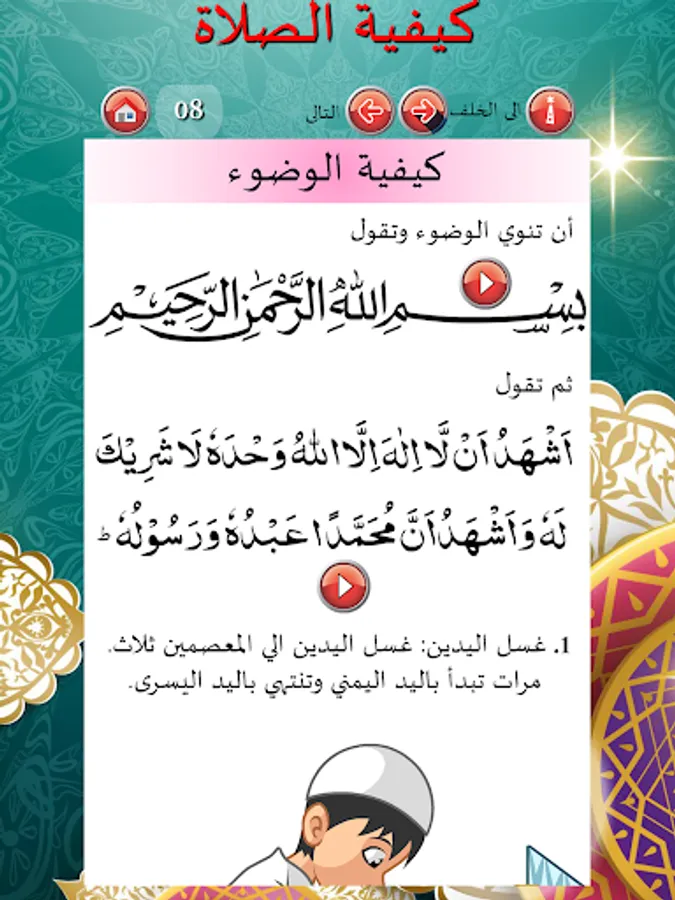 كيفية الصلاة
الى الخلف
التالى
08
كيفية الوضوء
أن تنوي الوضوء وتقول
بِسْمِ اللهِ الرَّحْمٰنِ الرَّحِيْمِ
ثم تقول
اَشْهَدُ اَنْ لَّا اِلٰهَ اِلَّا اللهُ وَحْدَهٗ لَا شَرِيْكَ
لَهٗ وَاَشْهَدُ اَنَّ مُحَمَّدًا عَبْدُهٗ وَرَسُوْلُهٗ ؕ
1. غسل اليدين: غسل اليدين الي المعصمين ثلاث.
مرات تبدأ باليد اليمني وتنتهي باليد اليسرى.